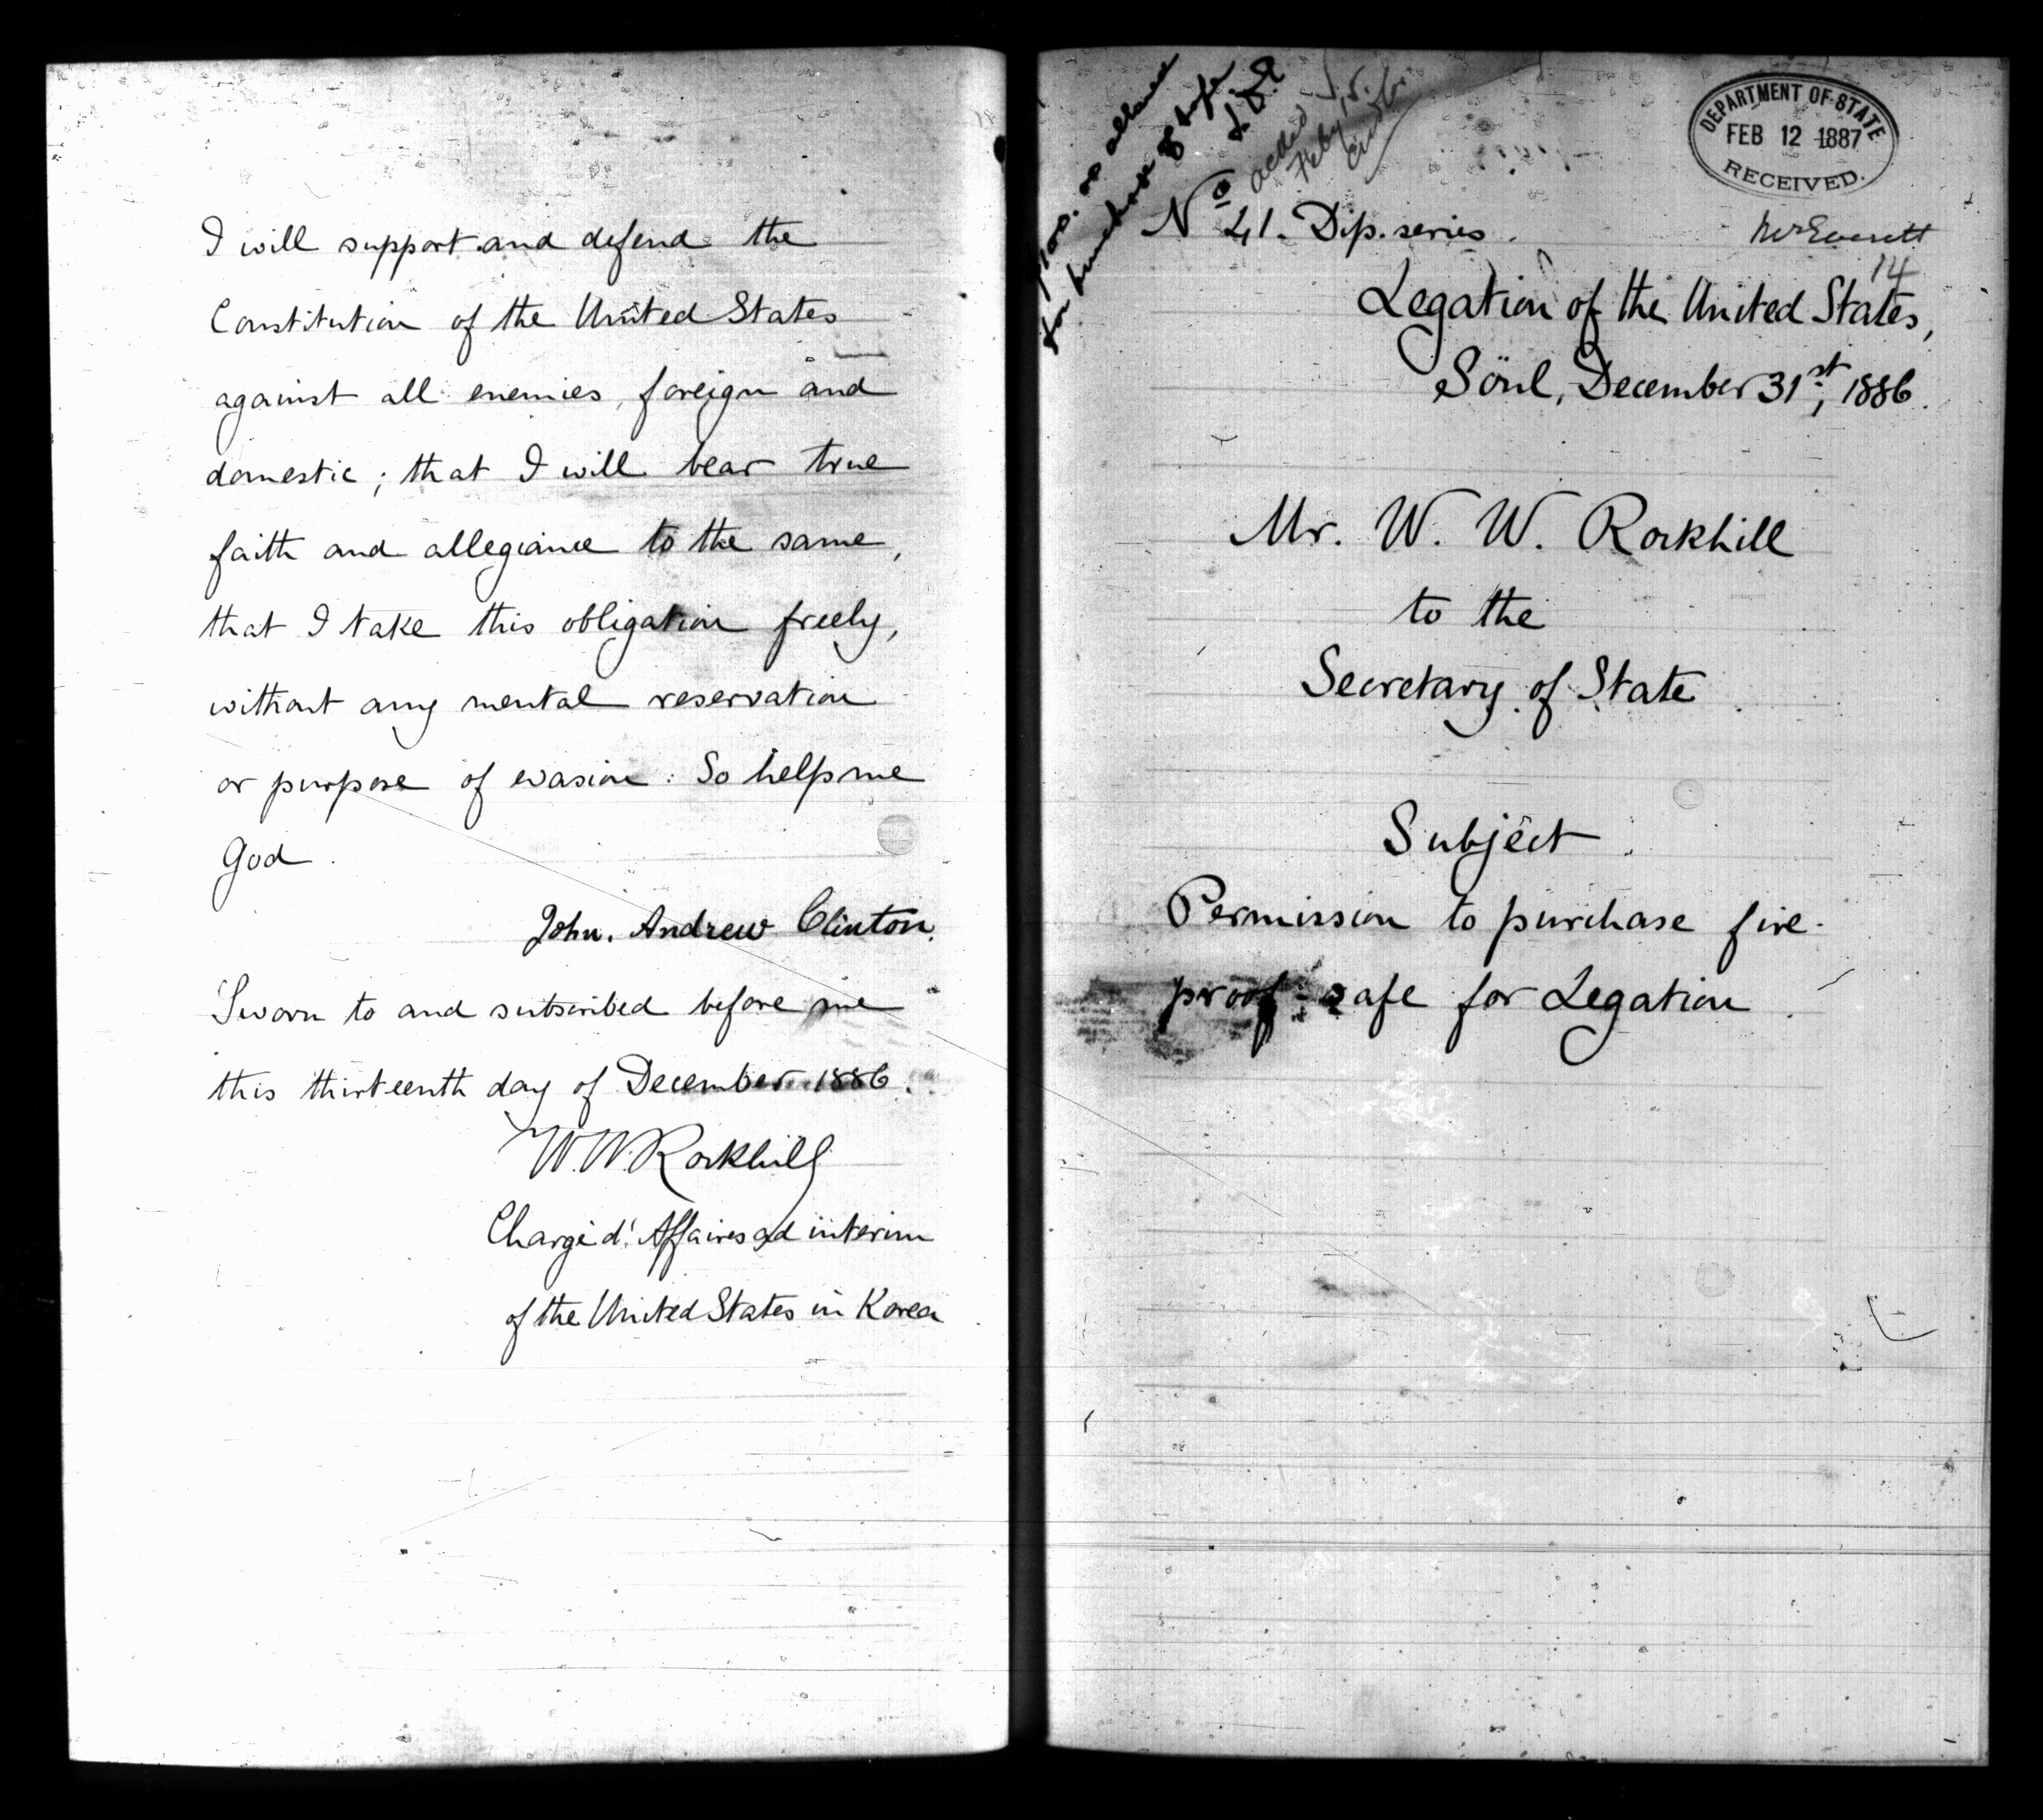 I will support and defend the
Constitution of the United States
against all enemies, foreign and
domestic; that I will bear true
faith and allegiance to the same,
that I take this obligation freely,
without any mental reservation
or purpose of evasion. So help me
God.
John. Andrew Clinton.
Sworn to and subscribed before me
this thirteenth day of December 1886.
W. W. Rockhill
Chargé d'Affaires ad interim
of the United States in Korea
for purchase of safe
Feby 15.
DEPARTMENT OF STATE
FEB 12 1887
RECEIVED.
No 41. Dip. series.
Mr Everett
14
Legation of the United States,
Söul, December 31st, 1886.
Mr. W. W. Rockhill
to the
Secretary of State.
Subject
Permission to purchase fire-
proof-safe for Legation.